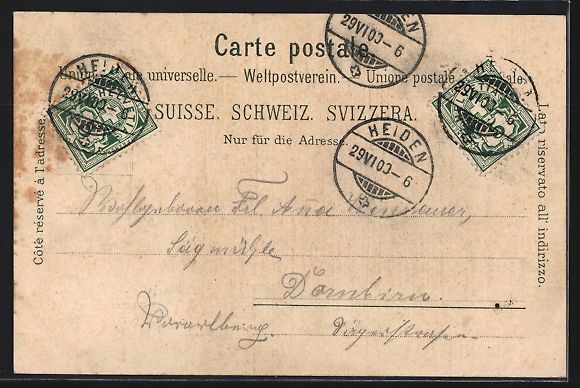 Carte postale.
Union postale universelle. — Weltpostverein. — Unione postale universale.
SUISSE. SCHWEIZ. SVIZZERA.
Nur für die Adresse.
Côté réservé à l'adresse.
Lato riservato all' indirizzo.
HEIDEN
29 VI 00 – 6
HEIDEN
29 VI 00 – 6
HEIDEN
29 VI 00 – 6
Wohlgeboren Frl. Anna
Sägmühle
Dornbirn.
Vorarlberg.